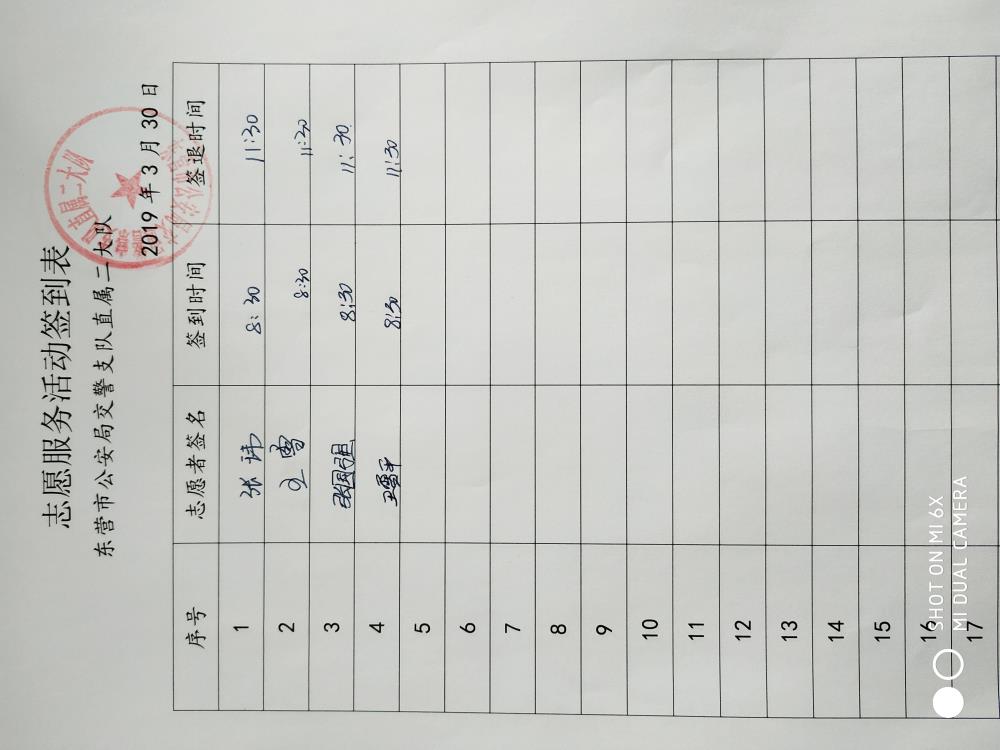 志愿服务活动签到表
东营市公安局交警支队直属二大队
2019 年 3 月 30 日
序号 志愿者签名 签到时间 签退时间
1 张玮 8:30 11:30
2 王雪 8:30 11:30
3 张国强 8:30 11:30
4 8:30 11:30
5
6
7
8
9
10
11
12
13
14
15
16
17
SHOT ON MI 6X
MI DUAL CAMERA